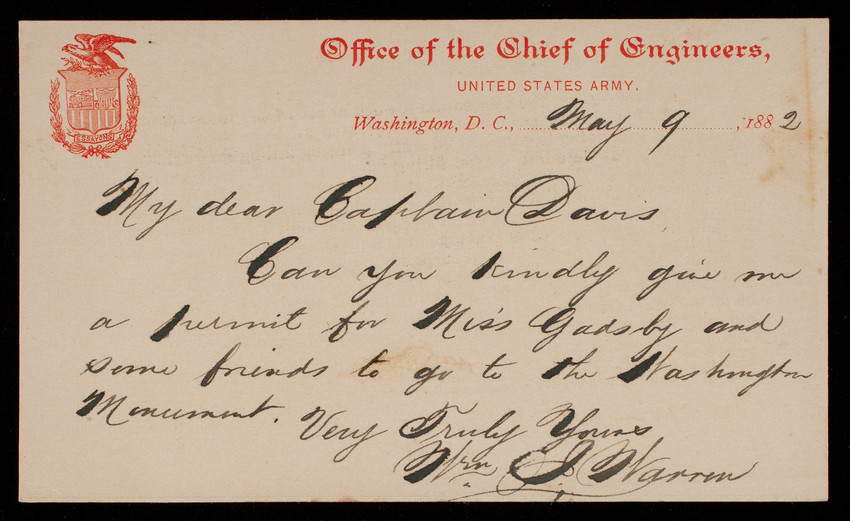 Office of the Chief of Engineers,
UNITED STATES ARMY.
ESSAYONS
Washington, D. C., May 9, 1882
My dear Captain Davis
Can you kindly give me
a permit for Miss Gadsby and
some friends to go to the Washington
Monument.
Very Truly Yours
Wm J Warren